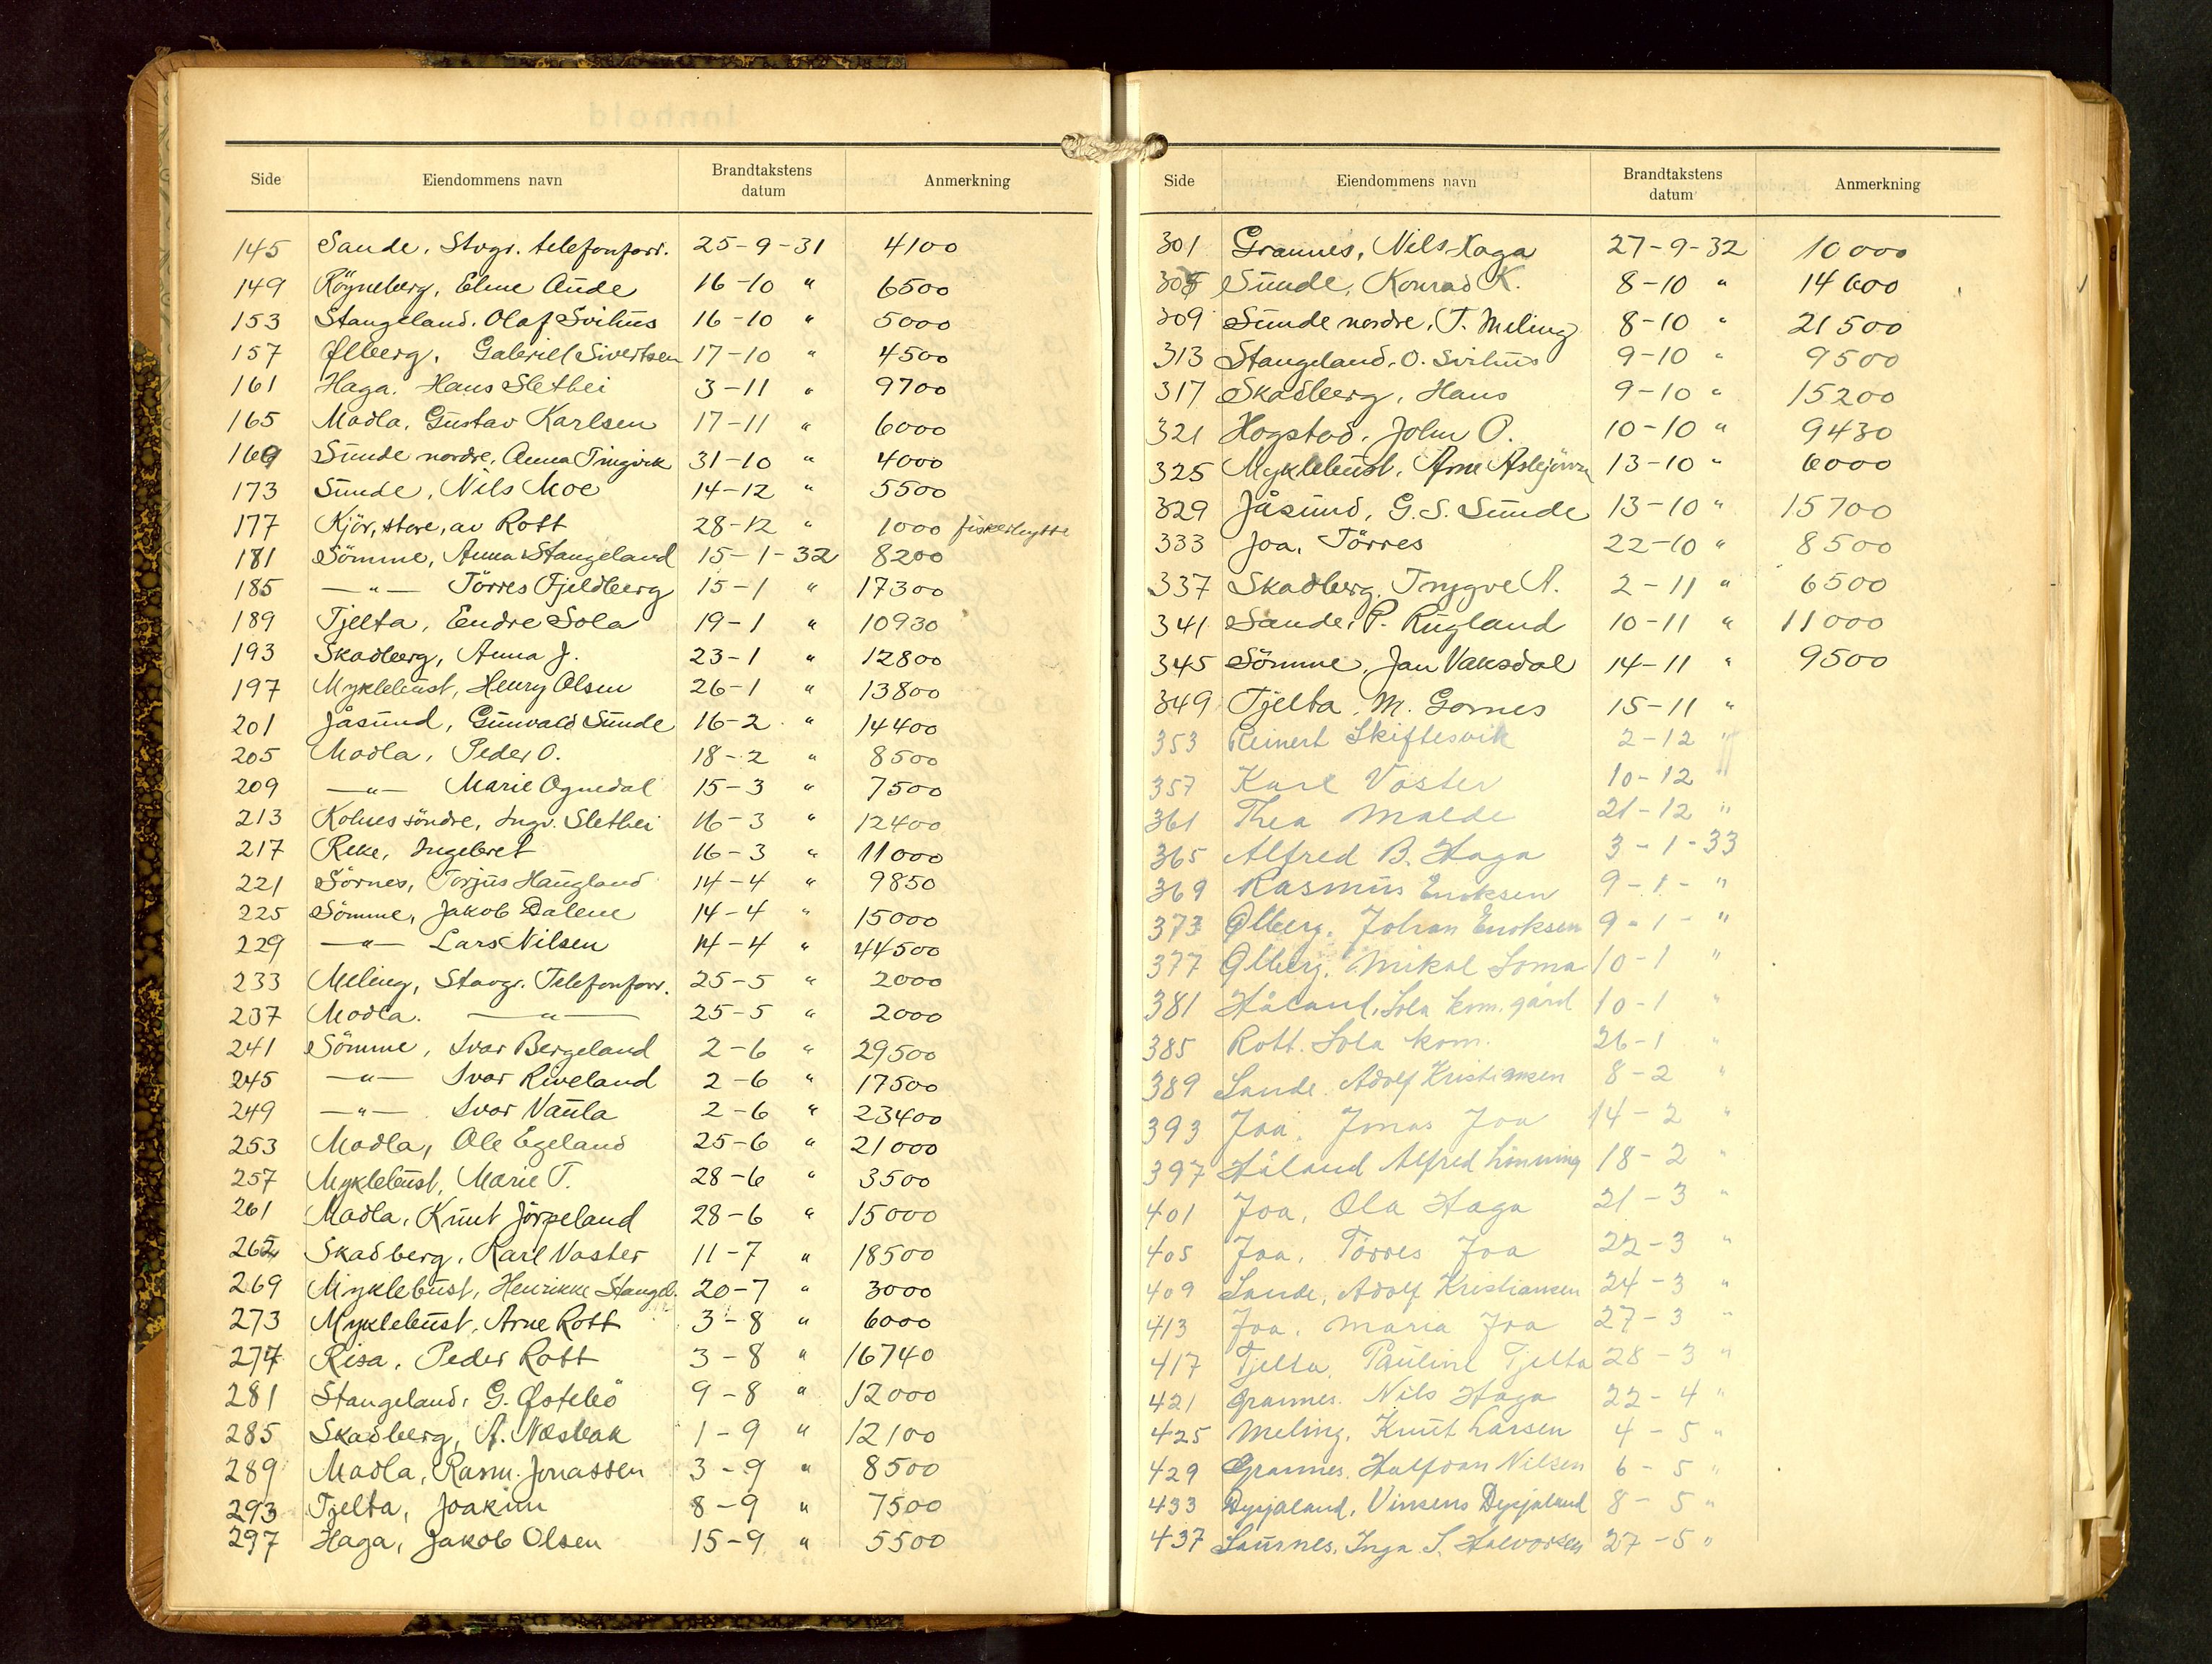 Side Eiendommens navn Brandtakstens datum Anmerkning
145 Sande, Stvgr. telefonforr. 25-9-31 4100
149 Røyneberg, Elme Aude 16-10 " 6500
153 Stangeland, Olaf Svihus 16-10 " 5000
157 Ølberg, Gabriel Sivertsen 17-10 " 4500
161 Haga, Hans Slethei 3-11 " 9700
165 Madla, Gustav Karlsen 17-11 " 6000
169 Sunde nordre, Anna Tingvik 31-10 " 4000
173 Sunde, Nils Moe 14-12 " 5500
177 Kjör, store, av Rott 28-12 " 1000 fiskerhytte
181 Sömme, Anna Stangeland 15-1-32 8200
185 —"— Törres Fjeldberg 15-1 " 17300
189 Tjelta, Endre Sola 19-1 " 10930
193 Skadberg, Anna J. 23-1 " 12800
197 Myklebust, Henry Olsen 26-1 " 13800
201 Jåsund, Gunvald Sunde 16-2 " 14400
205 Madla, Peder O. 18-2 " 8500
209 —"— Marie Ognedal 15-3 " 7500
213 Kolnes söndre, Ingv. Slethei 16-3 " 12400
217 Reke, Ingebret 16-3 " 11000
221 Sörnes, Torjus Haugland 14-4 " 9850
225 Sömme, Jakob Dalene 14-4 " 15000
229 —"— Lars Nilsen 14-4 " 44500
233 Meling, Stavgr. Telefonforr. 25-5 " 2000
237 Madla. —"— 25-5 " 2000
241 Sömme, Ivar Bergeland 2-6 " 29500
245 —"— Ivar Riveland 2-6 " 17500
249 —"— Ivar Vaula 2-6 " 23400
253 Madla, Ole Egeland 25-6 " 21000
257 Myklebust, Marie T. 28-6 " 3500
261 Madla, Knut Jörpeland 28-6 " 15000
265 Skadberg, Karl Vaster 11-7 " 18500
269 Myklebust, Henrikke Stangel. 20-7 " 3000
273 Myklebust, Arne Rott 3-8 " 6000
277 Risa, Peder Rott 3-8 " 16740
281 Stangeland, G. Østebö 9-8 " 12000
285 Skadberg, A. Næsbak 1-9 " 12100
289 Madla, Rasm. Jonassen 3-9 " 8500
293 Tjelta, Joakim 8-9 " 7500
297 Haga, Jakob Olsen 15-9 " 5500
Side Eiendommens navn Brandtakstens datum Anmerkning
301 Grannes, Nils Haga 27-9-32 10000
305 Sunde, Konrad K. 8-10 " 14600
309 Sunde nordre, T. Meling 8-10 " 21500
313 Stangeland, O. Svihus 9-10 " 9500
317 Skadberg, Hans 9-10 " 15200
321 Hogstad, John O. 10-10 " 9430
325 Myklebust, Arne 13-10 " 6000
329 Jåsund, G. S. Sunde 13-10 " 15700
333 Joa, Törres 22-10 " 8500
337 Skadberg, Trygve A. 2-11 " 6500
341 Sande, P. Rugland 10-11 " 11000
345 Sömme, Jan Vaksdal 14-11 " 9500
349 Tjelta, M. Gornes 15-11 "
353 Reinert Skiftesvik 2-12 "
357 Karl Vaster 10-12 "
361 Thea Malde 21-12 "
365 Alfred B. Haga 3-1-33
369 Rasmus Enoksen 9-1- "
373 Ølberg, Johan Enoksen 9-1- "
377 Ølberg, Mikal Soma 10-1 "
381 Håland, Sola kom. gård 10-1 "
385 Rott. Sola kom. 26-1 "
389 Sande. Adolf Kristiansen 8-2 "
393 Joa, Jonas Joa 14-2 "
397 Håland Alfred Lönning 18-2 "
401 Joa, Ola Haga 21-3 "
405 Joa, Törres Joa 22-3 "
409 Sande, Adolf Kristiansen 24-3 "
413 Joa, Maria Joa 27-3 "
417 Tjelta, Pauline Tjelta 28-3 "
421 Grannes. Nils Haga 22-4 "
425 Meling, Knut Larsen 4-5 "
429 Grannes, Halfdan Nilsen 6-5 "
433 Dysjaland, Vinsens Dysjaland 8-5 "
437 Inga S. Halvorsen 27-5 "